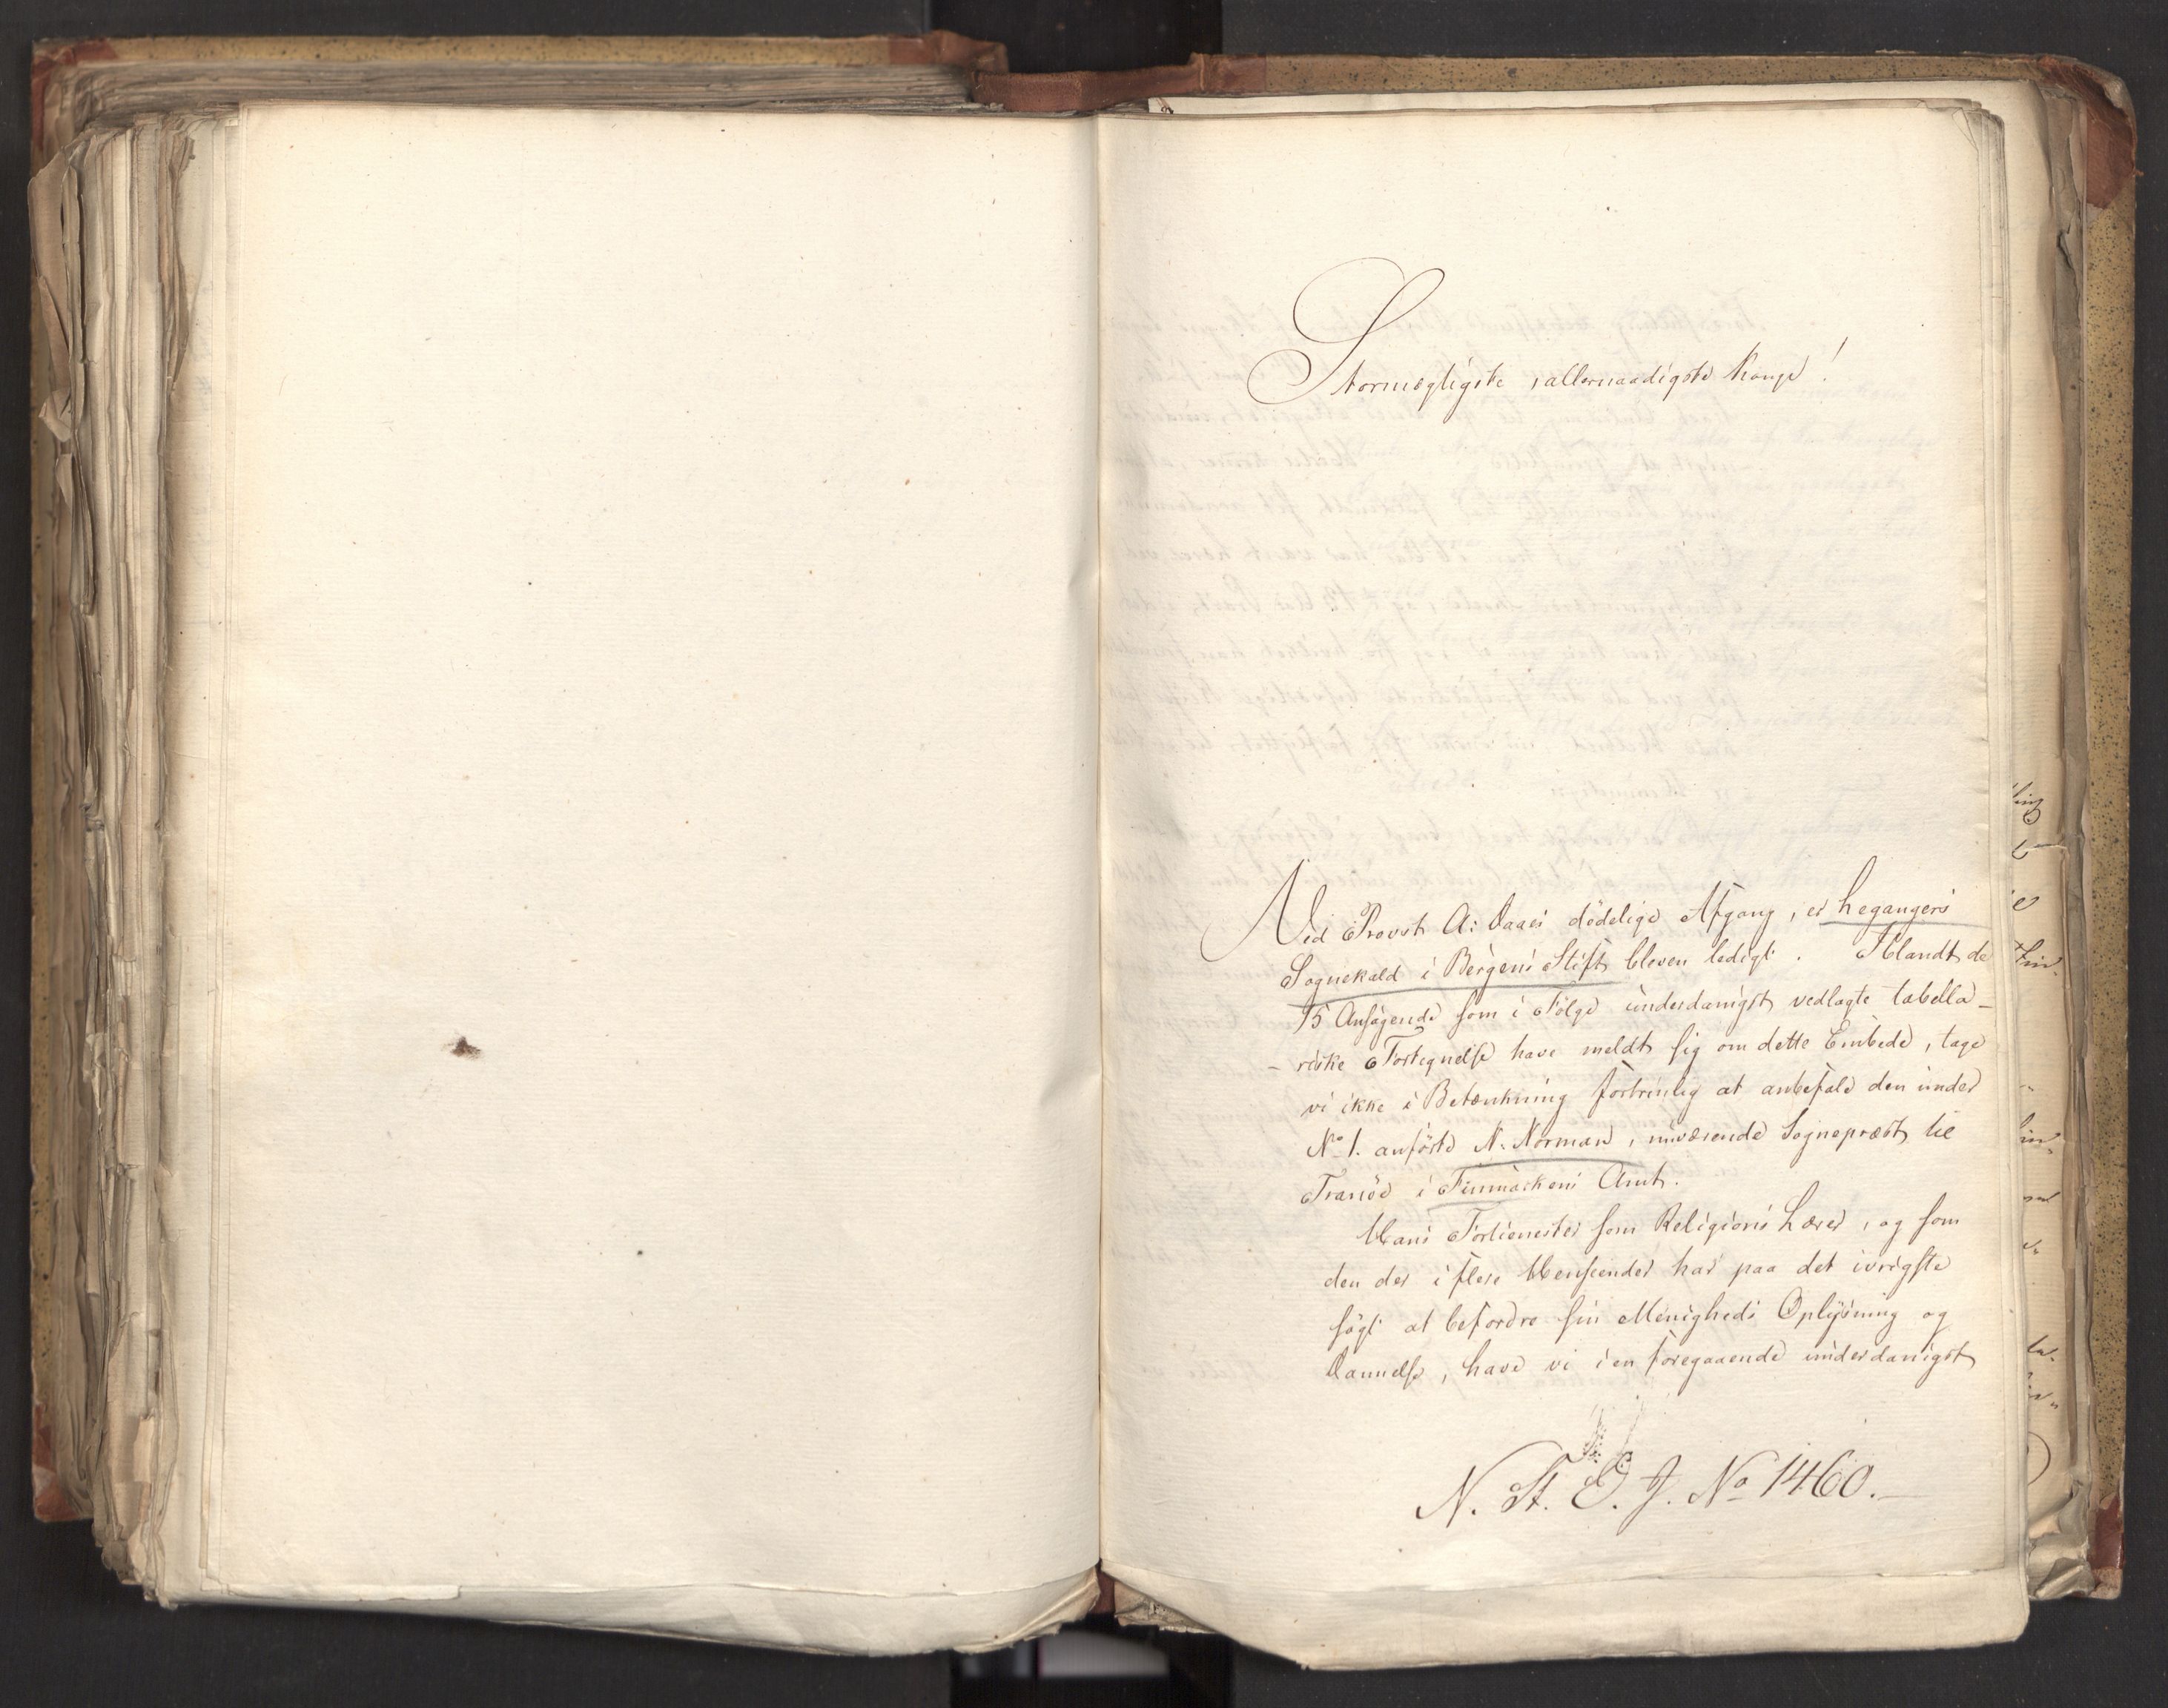 Stormægtigste, allernaadigste Konge!
Ved Provst A: Daaes dødelige Afgang, er Leganger's
Sognekald i Bergens Stift bleven ledigt. Iblandt de
15 Ansøgende som i Følge underdanigst vedlagte tabella-
- riske Fortegnelse have meldt sig om dette Embede, tage
vi ikke i Betænkning fortrinlig at anbefale den under
No 1. anførte N. Norman, nuværende Sognepræst til
Tranøe i Finmarkens Amt.
Hans Fortienester som Religions Lærer, og som
den der i flere Henseender har paa det ivrigste
søgt at befordre sin Menigheds Oplysning og
Dannelse, have vi i en foregaaende underdanigst
N. St. E. J. No 1460.